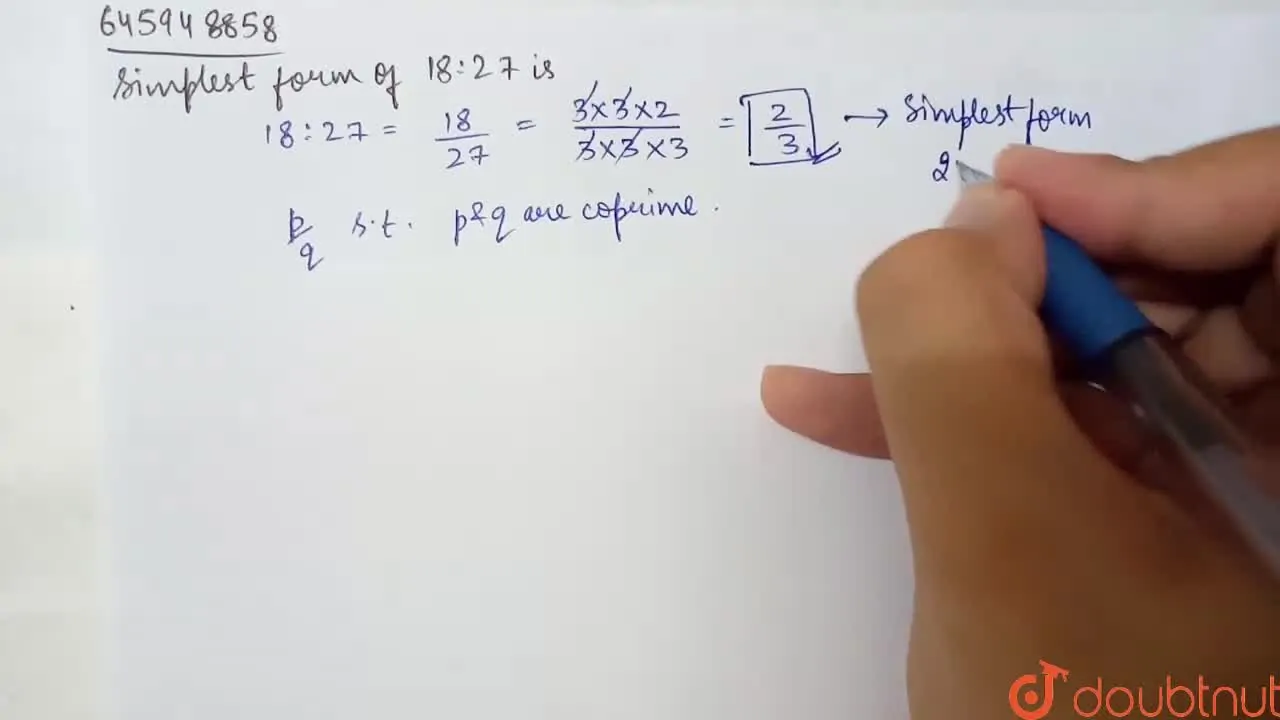 645948858
Simplest form of 18:27 is
18:27 = 18/27 = 3×3×2/3×3×3 = 2/3 → Simplest form
2
p/q s.t. p & q are coprime.
doubtnut